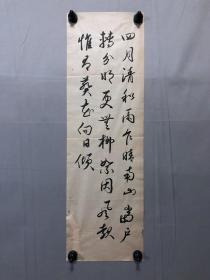 四月清和雨乍晴南山當户
轉分明更無柳絮因風起
惟有葵花向日傾